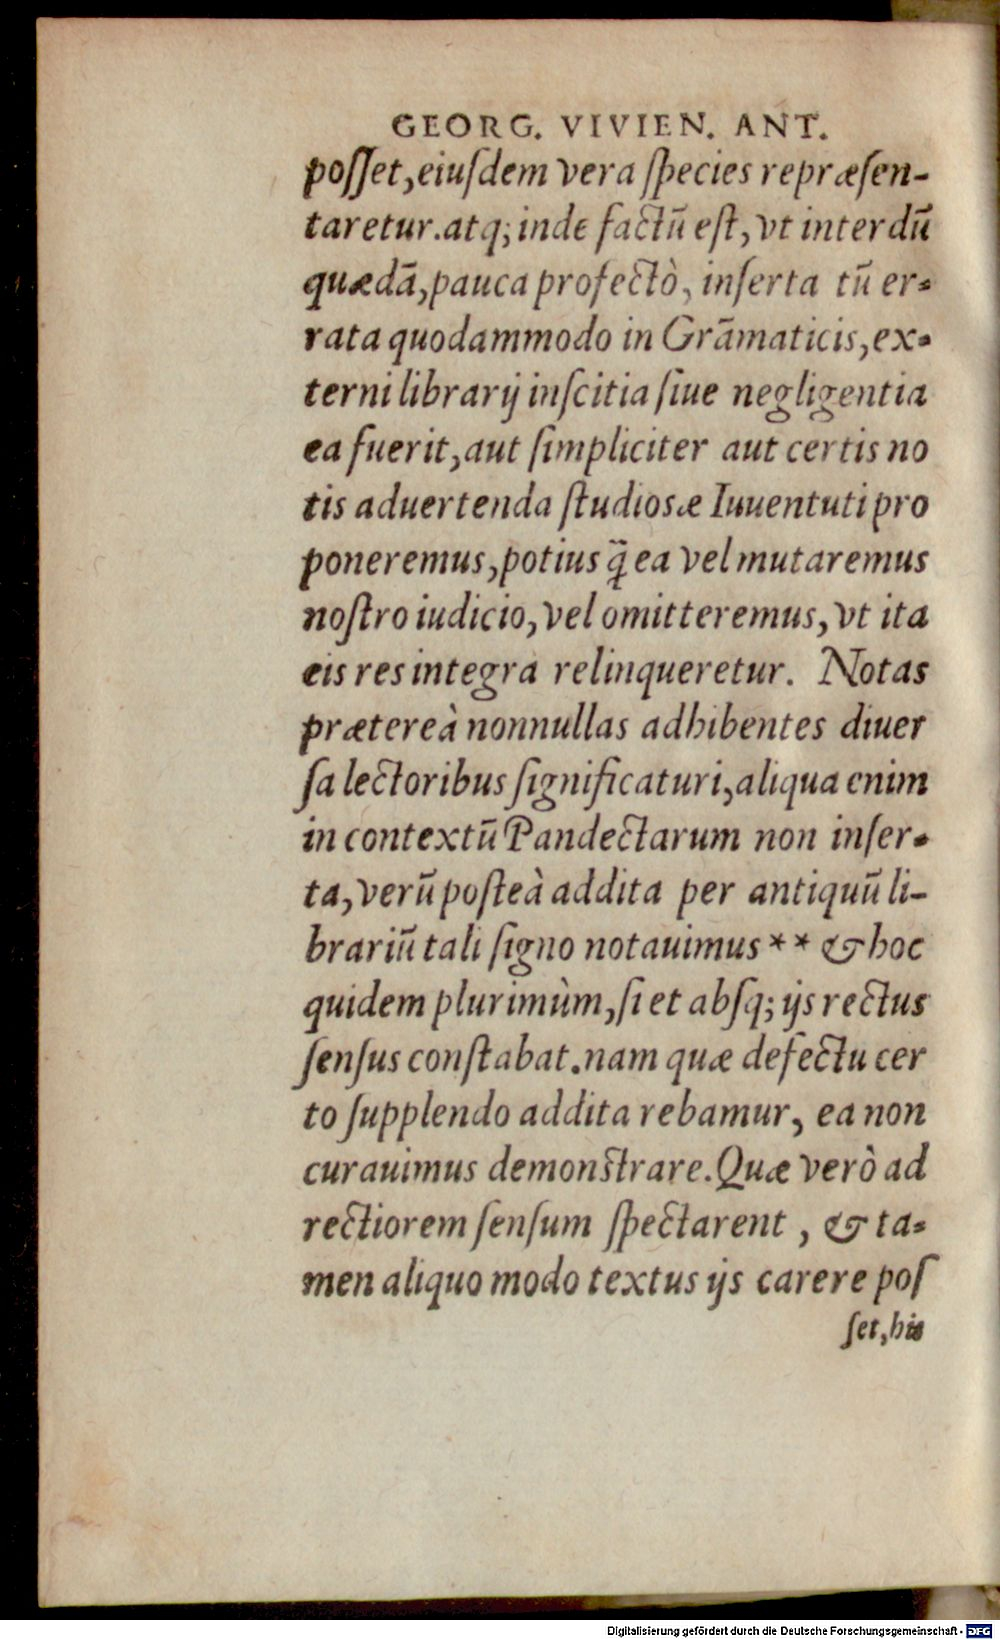 GEORG. VIVIEN. ANT.
poſſet,eiuſdem vera ſpecies repræſen-
taretur.atq; inde factū eſt, vt interdū
quædā,pauca profectò, inſerta tū er-
rata quodammodo in Grāmaticis,ex-
terni librarij inſcitia ſiue negligentia
ea fuerit,aut ſimpliciter aut certis no
tis aduertenda ſtudiosæ Iuuentuti pro
poneremus,potius q̄ ea vel mutaremus
noſtro iudicio, vel omitteremus, vt ita
eis res integra relinqueretur. Notas
prætereà nonnullas adhibentes diuer
ſa lectoribus ſignificaturi,aliqua enim
in contextū Pandectarum non inſer-
ta, verū poſteà addita per antiquū li-
brariū tali ſigno notauimus ** & hoc
quidem plurimùm,ſi et abſq; ijs rectus
ſenſus conſtabat.nam quæ defectu cer
to ſupplendo addita rebamur, ea non
curauimus demonſtrare.Quæ verò ad
rectiorem ſenſum ſpectarent , & ta-
men aliquo modo textus ijs carere poſ
ſet,his
Digitalisierung gefördert durch die Deutsche Forschungsgemeinschaft - DFG